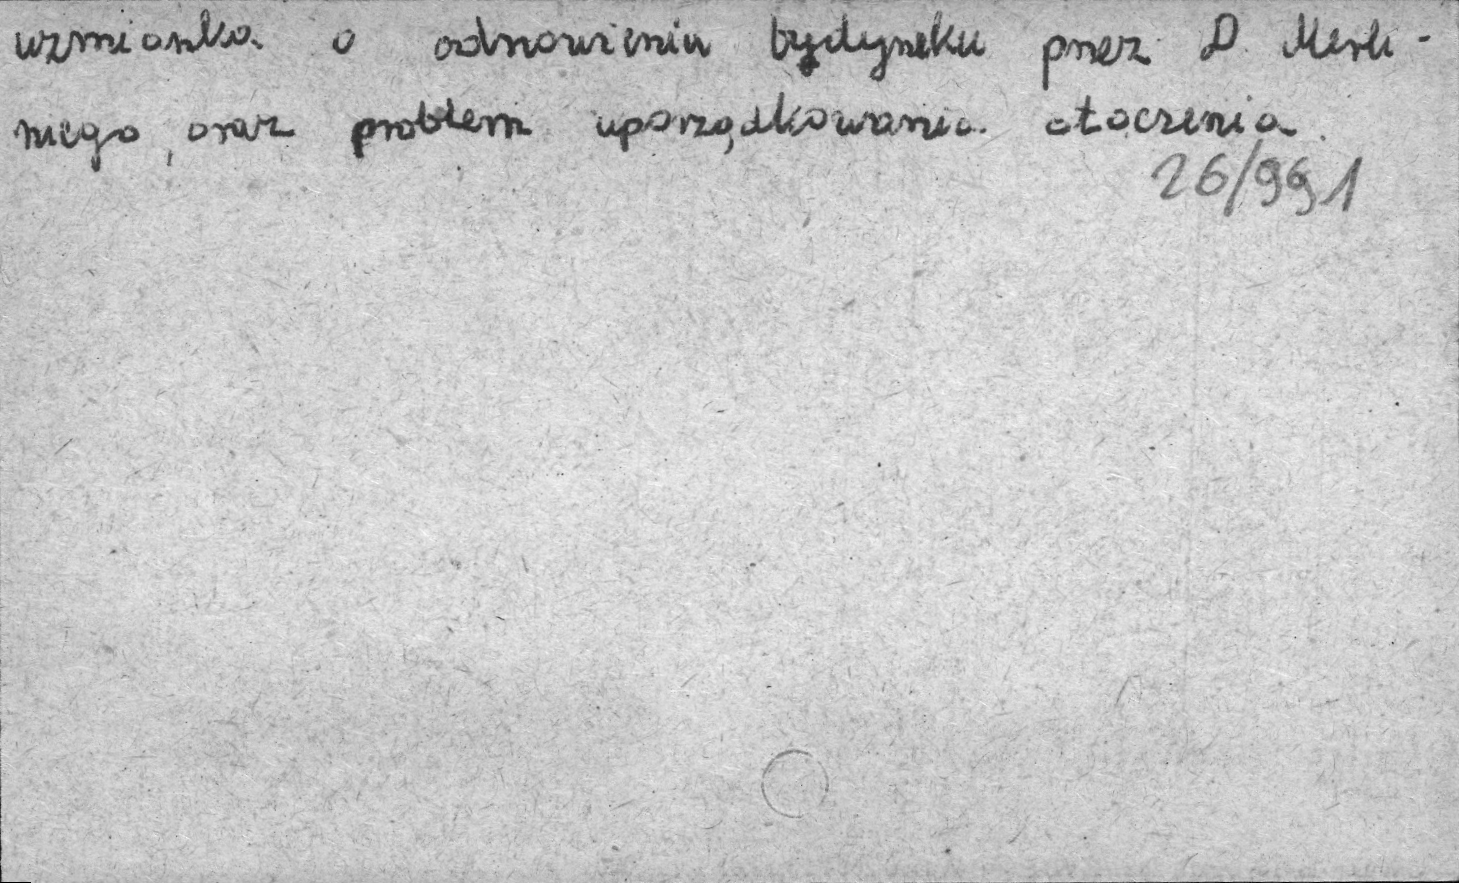 wzmianka o odnowieniu budyneku przez D. Merli-
niego, oraz problem uporządkowania otoczenia.
26/991